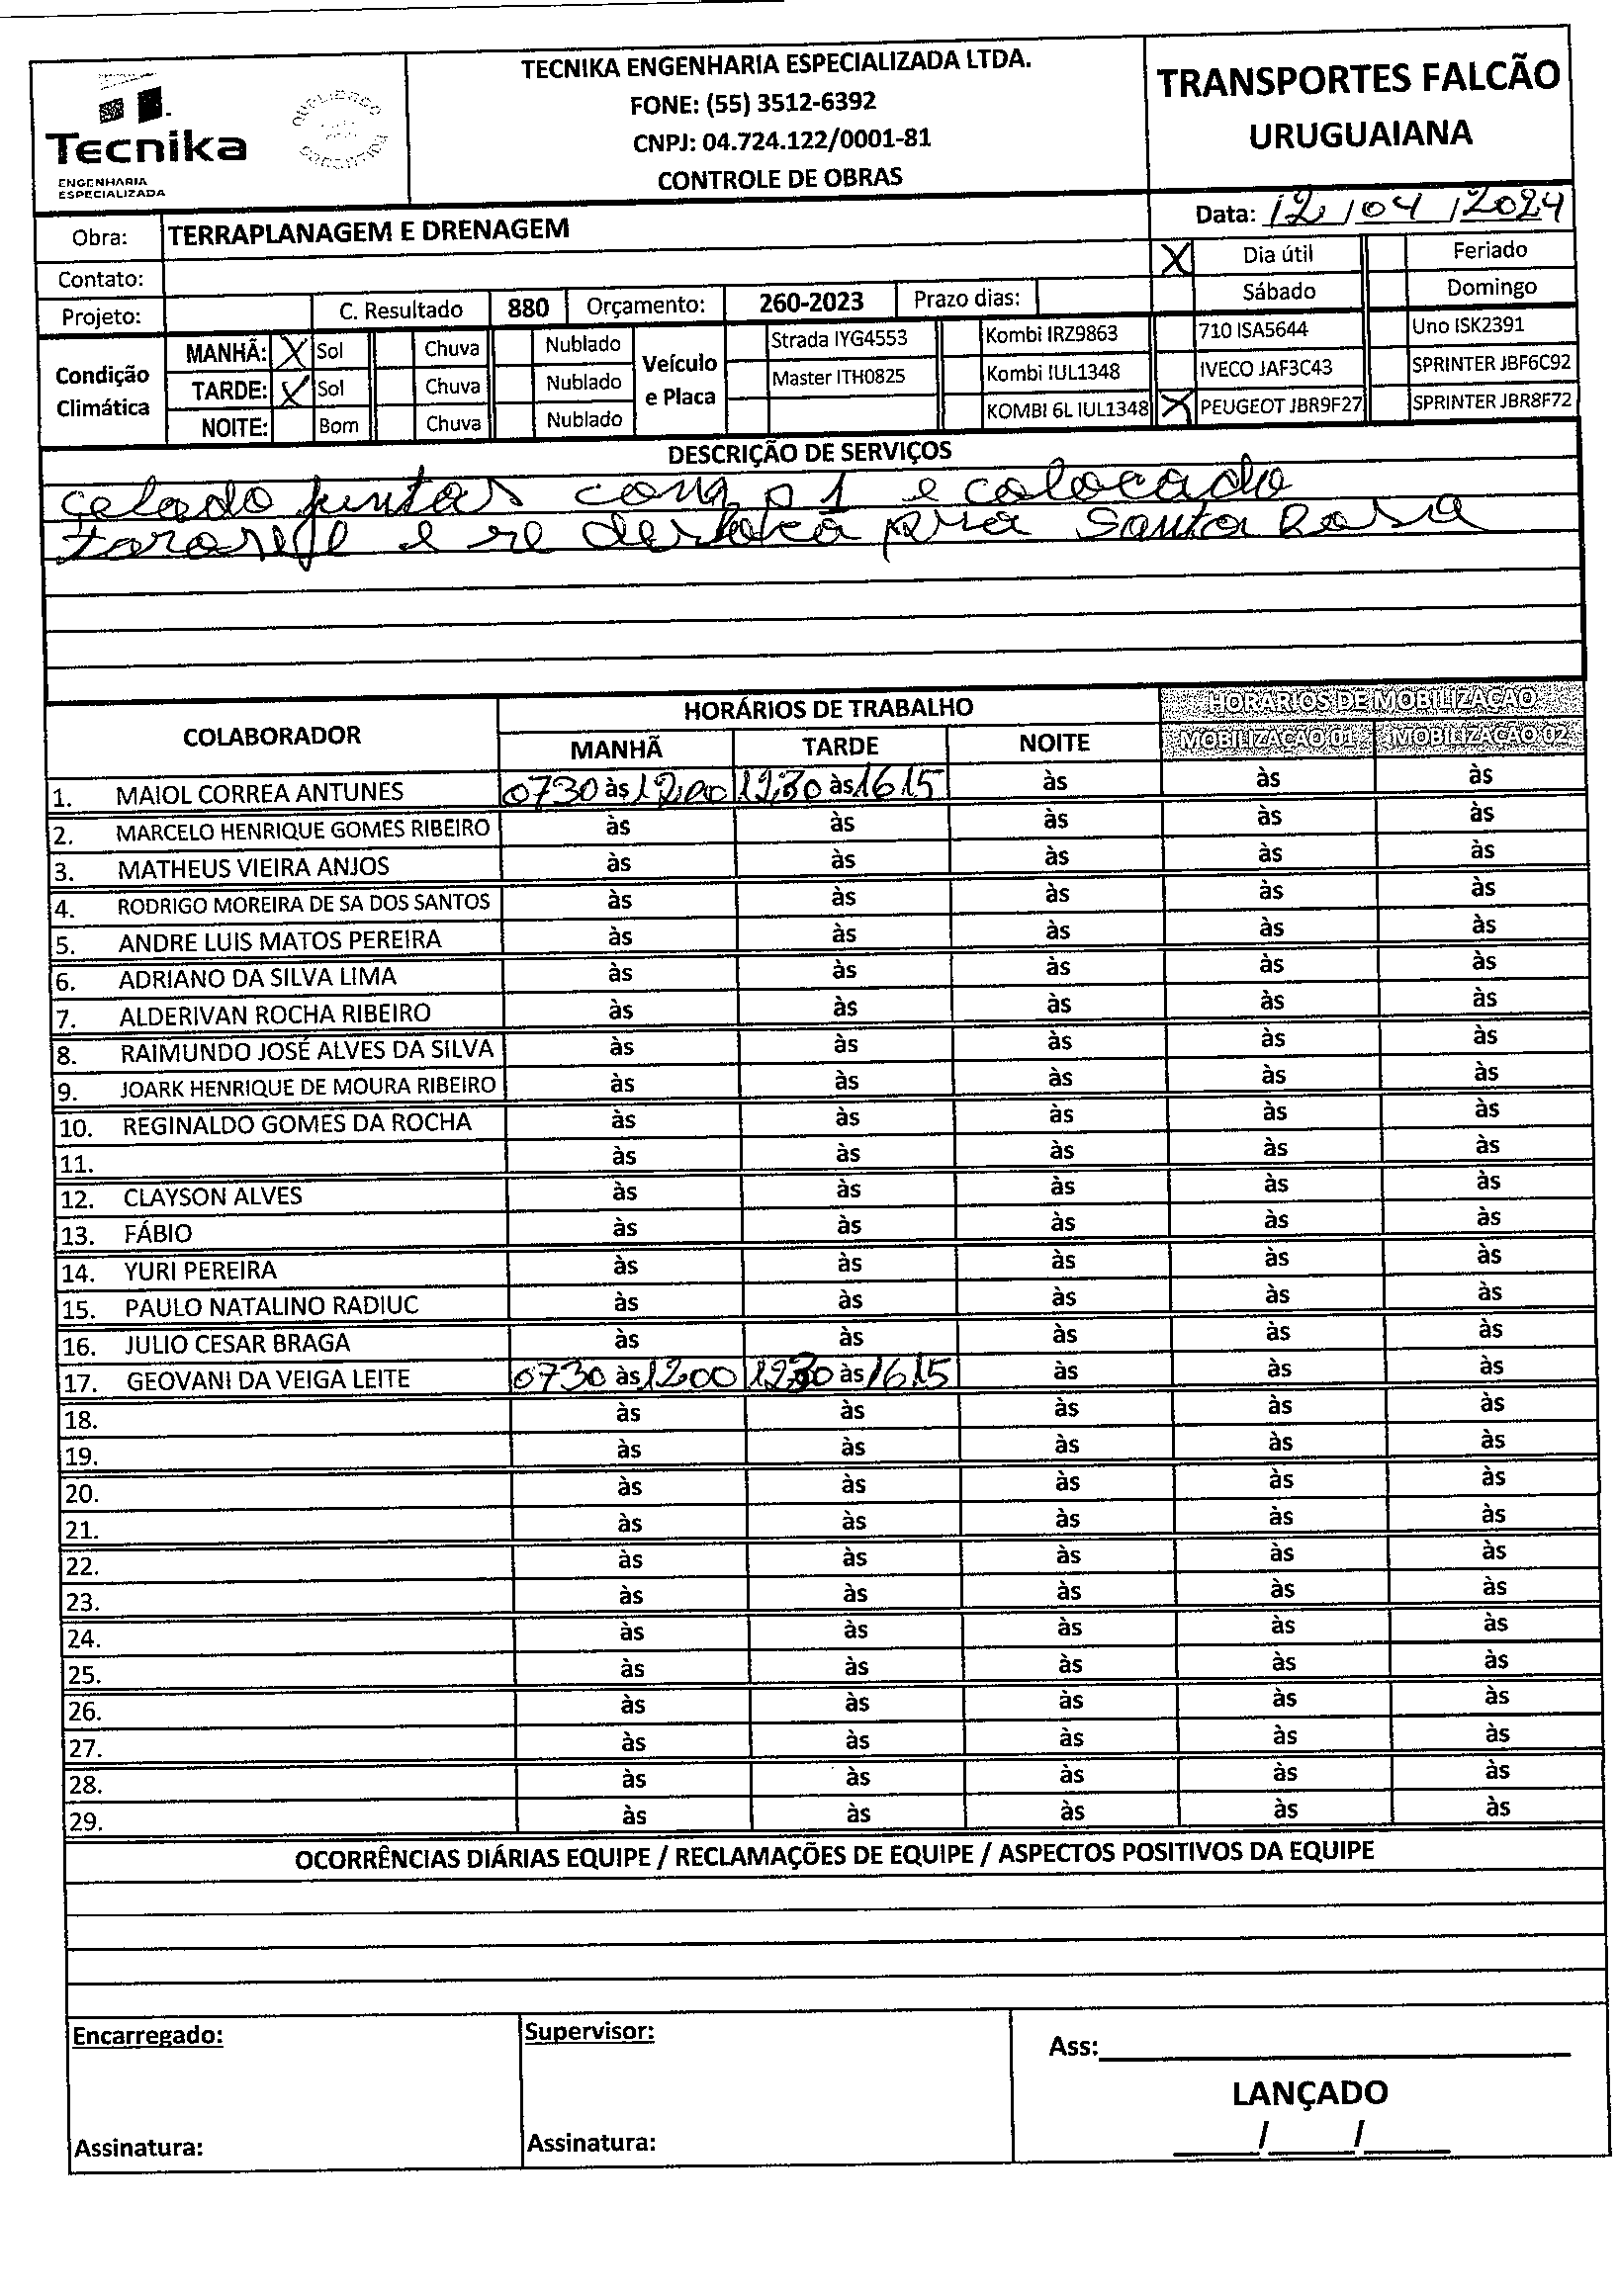 Tecnika
ENGENHARIA
ESPECIALIZADA
TECNIKA ENGENHARIA ESPECIALIZADA LTDA.
FONE: (55) 3512-6392
CNPJ: 04.724.122/0001-81
CONTROLE DE OBRAS
TRANSPORTES FALCÃO
URUGUAIANA
Data: 12/04/2024
Obra: TERRAPLANAGEM E DRENAGEM
X Dia útil Feriado
Contato:
Sábado Domingo
Projeto: C. Resultado 880 Orçamento: 260-2023 Prazo dias:
Condição Climática
MANHÃ: X Sol Chuva Nublado
TARDE: X Sol Chuva Nublado
NOITE: Bom Chuva Nublado
Veículo e Placa
Strada IYG4553 Kombi IRZ9863 710 ISA5644 Uno ISK2391
Master ITH0825 Kombi IUL1348 IVECO JAF3C43 SPRINTER JBF6C92
KOMBI 6L IUL1348 X PEUGEOT JBR9F27 SPRINTER JBR8F72
DESCRIÇÃO DE SERVIÇOS
juntas com e colocado
e pra Santa Rosa
COLABORADOR HORÁRIOS DE TRABALHO HORÁRIOS DE MOBILIZAÇÃO
MANHÃ TARDE NOITE MOBILIZAÇÃO 01 MOBILIZAÇÃO 02
1. MAIOL CORREA ANTUNES 0730 às 12,00 12,30 às 1615 às às às
2. MARCELO HENRIQUE GOMES RIBEIRO às às às às às
3. MATHEUS VIEIRA ANJOS às às às às às
4. RODRIGO MOREIRA DE SA DOS SANTOS às às às às às
5. ANDRE LUIS MATOS PEREIRA às às às às às
6. ADRIANO DA SILVA LIMA às às às às às
7. ALDERIVAN ROCHA RIBEIRO às às às às às
8. RAIMUNDO JOSÉ ALVES DA SILVA às às às às às
9. JOARK HENRIQUE DE MOURA RIBEIRO às às às às às
10. REGINALDO GOMES DA ROCHA às às às às às
11. às às às às às
12. CLAYSON ALVES às às às às às
13. FÁBIO às às às às às
14. YURI PEREIRA às às às às às
15. PAULO NATALINO RADIUC às às às às às
16. JULIO CESAR BRAGA às às às às às
17. GEOVANI DA VEIGA LEITE 0730 às 1200 1230 às 1615 às às às
18. às às às às às
19. às às às às às
20. às às às às às
21. às às às às às
22. às às às às às
23. às às às às às
24. às às às às às
25. às às às às às
26. às às às às às
27. às às às às às
28. às às às às às
29. às às às às às
OCORRÊNCIAS DIÁRIAS EQUIPE / RECLAMAÇÕES DE EQUIPE / ASPECTOS POSITIVOS DA EQUIPE
Encarregado: Supervisor: Ass:
LANÇADO
Assinatura: Assinatura: / /